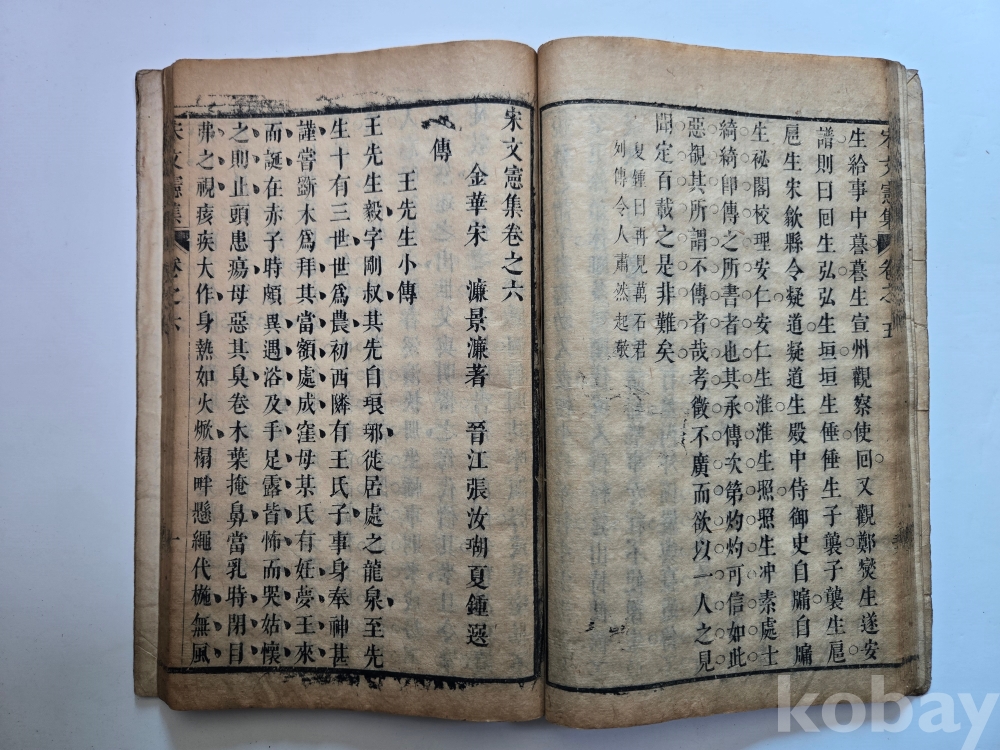 宋文憲集 卷之五
生給事中蟇蟇生宣州觀察使回又觀鄭爕生遂安
譜則曰回生弘弘生垣垣生倕倕生子襲子襲生扈
扈生宋歙縣令疑道疑道生殿中侍御史自牖自牖
生祕閣校理安仁安仁生淮淮生照照生冲素處士
綺綺卽傳之所書者也其承傳次第灼灼可信如此
惡覩其所謂不傳者哉考徵不廣而欲以一人之見
聞定百載之是非難矣
夏鍾曰再見萬石君
列傳令人肅然起敬
宋文憲集卷之六
金華宋 濂景濂著 晉江張汝瑚夏鍾選
傳
王先生小傳
王先生毅字剛叔其先自琅琊徙居處之龍泉至先
生十有三世世爲農初西隣有王氏子事身奉神甚
謹嘗斲木爲拜其當額處成窪母某氏有妊夢王來
而誕在赤子時頗異遇浴及手足露皆怖而哭姑懷
之則止頭患瘍母惡其臭卷木葉掩鼻當乳時閉目
弗之視痎疾大作身熱如火焮榻畔懸繩代椸無風
宋文憲集 卷之六 一
kobay